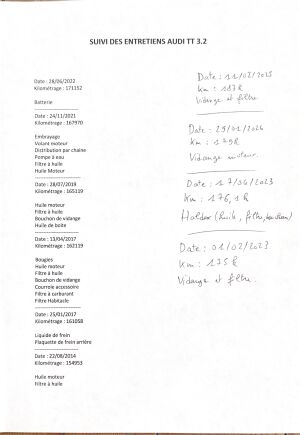 SUIVI DES ENTRETIENS AUDI TT 3.2
Date : 28/06/2022
Kilométrage : 171152
Batterie
Date : 24/11/2021
Kilométrage : 167970
Embrayage
Volant moteur
Distribution par chaine
Pompe à eau
Filtre à huile
Huile Moteur
Date : 28/07/2019
Kilométrage : 165119
Huile moteur
Filtre à huile
Bouchon de vidange
Huile de boite
Date : 13/04/2017
Kilométrage : 162119
Bougies
Huile moteur
Filtre à huile
Bouchon de vidange
Courroie accessoire
Filtre à carburant
Filtre Habitacle
Date : 25/01/2017
Kilométrage : 161058
Liquide de frein
Plaquette de frein arrière
Date : 22/08/2014
Kilométrage : 154953
Huile moteur
Filtre à huile
Date : 11/02/2025
Km :
Vidange et filtre.
Date : 25/01/2024
Km : 179k
Vidange moteur.
Date : 17/04/2023
Km : 176,1k
Haldex (huile, filtre,
Date : 01/02/2023
Km : 175k
Vidange et filtre.